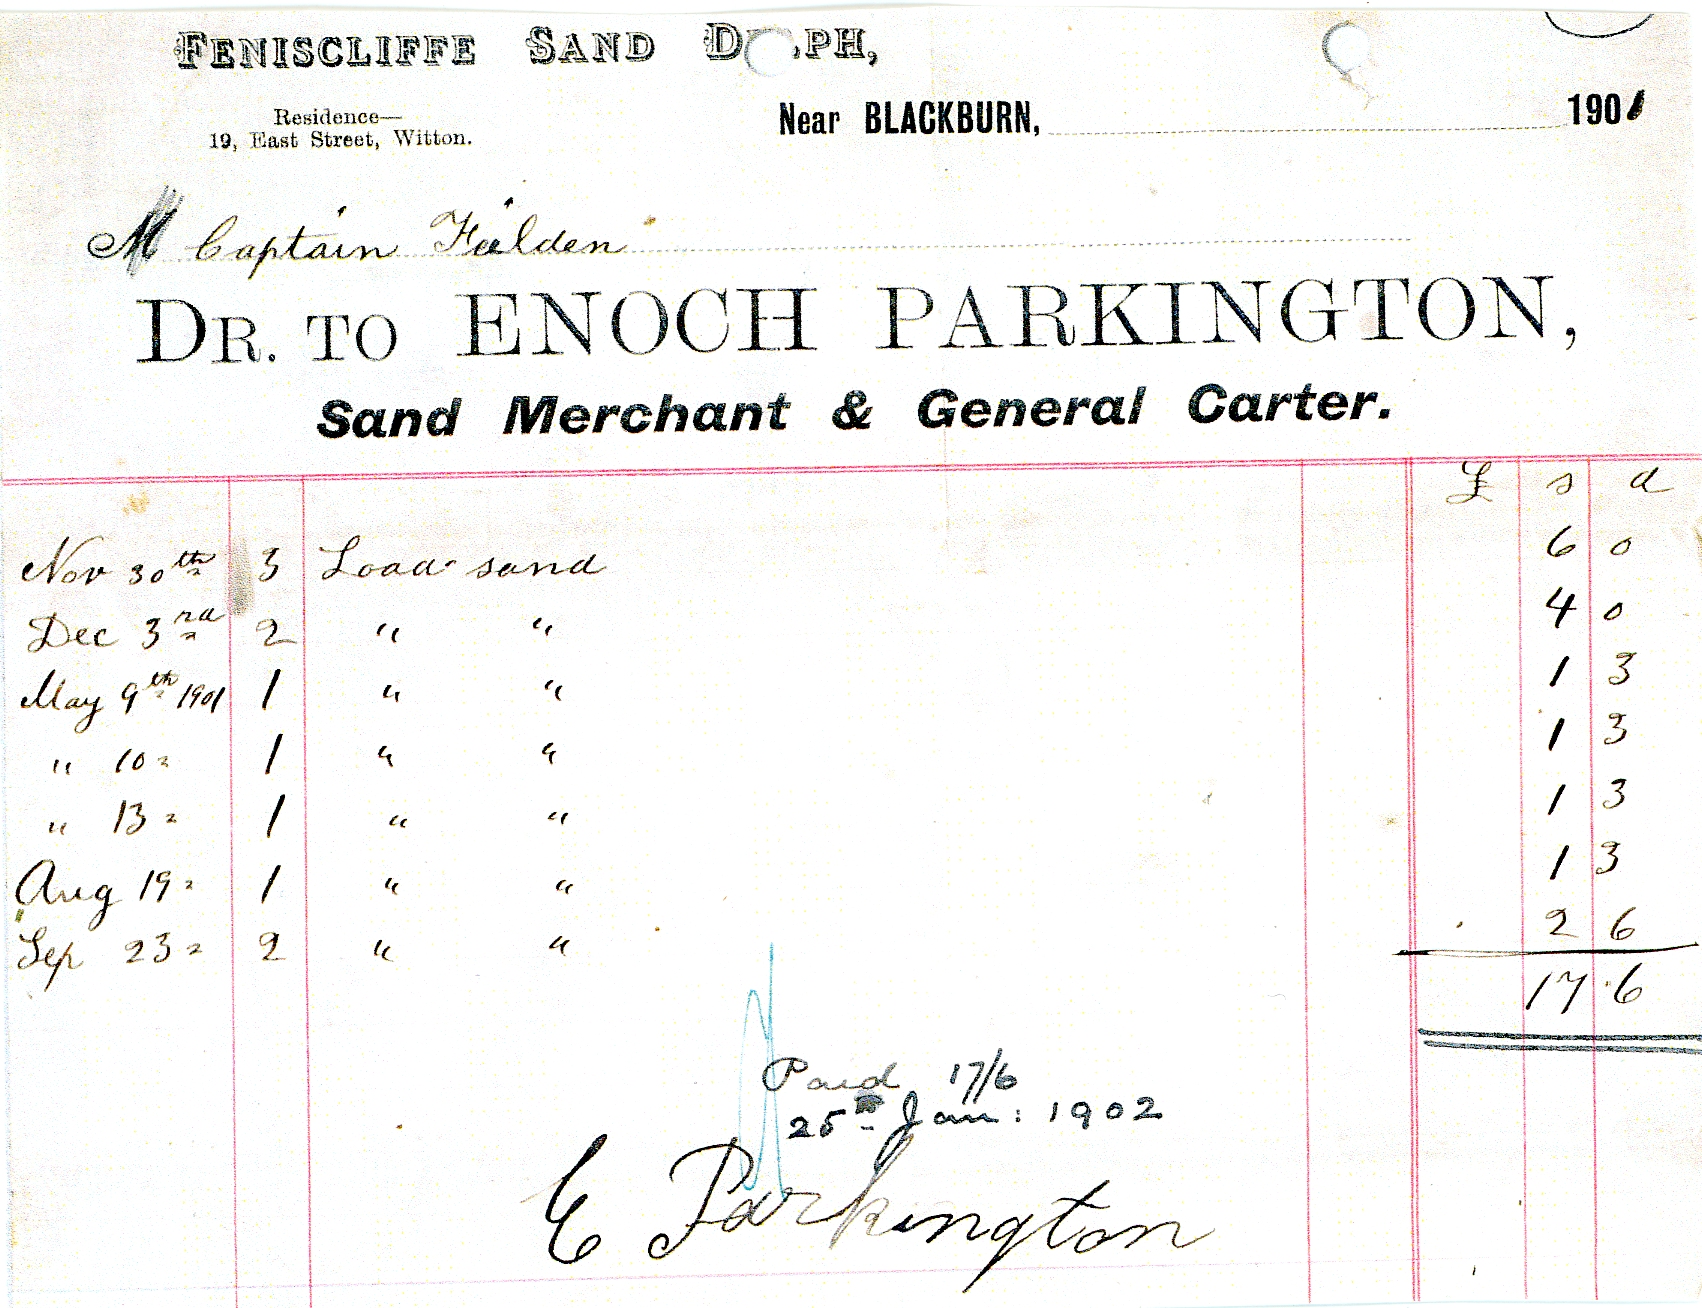 FENISCLIFFE SAND D PH,
Residence—
19, East Street, Witton.
Near BLACKBURN, 1901
M Captain Feilden
DR. TO ENOCH PARKINGTON,
Sand Merchant & General Carter.
£ s d
Nov 30th 3 Load sand 6 0
Dec 3rd 2 " " 4 0
May 9th 1901 1 " " 1 3
" 10 " 1 " " 1 3
" 13 " 1 " " 1 3
Aug 19 " 1 " " 1 3
Sep 23 " 2 " " 2 6
17 . 6
Paid 17/6
25th Jan: 1902
E Parkington